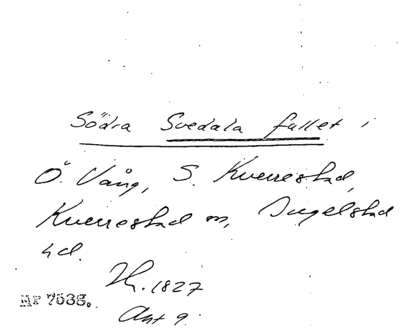 Södra Svedala fallet i
Ö. Vång, S. Kverrestad,
Kverrestad sn, Ingelstad
hd.
H. 1827
Akt 9.
Nr 7533.